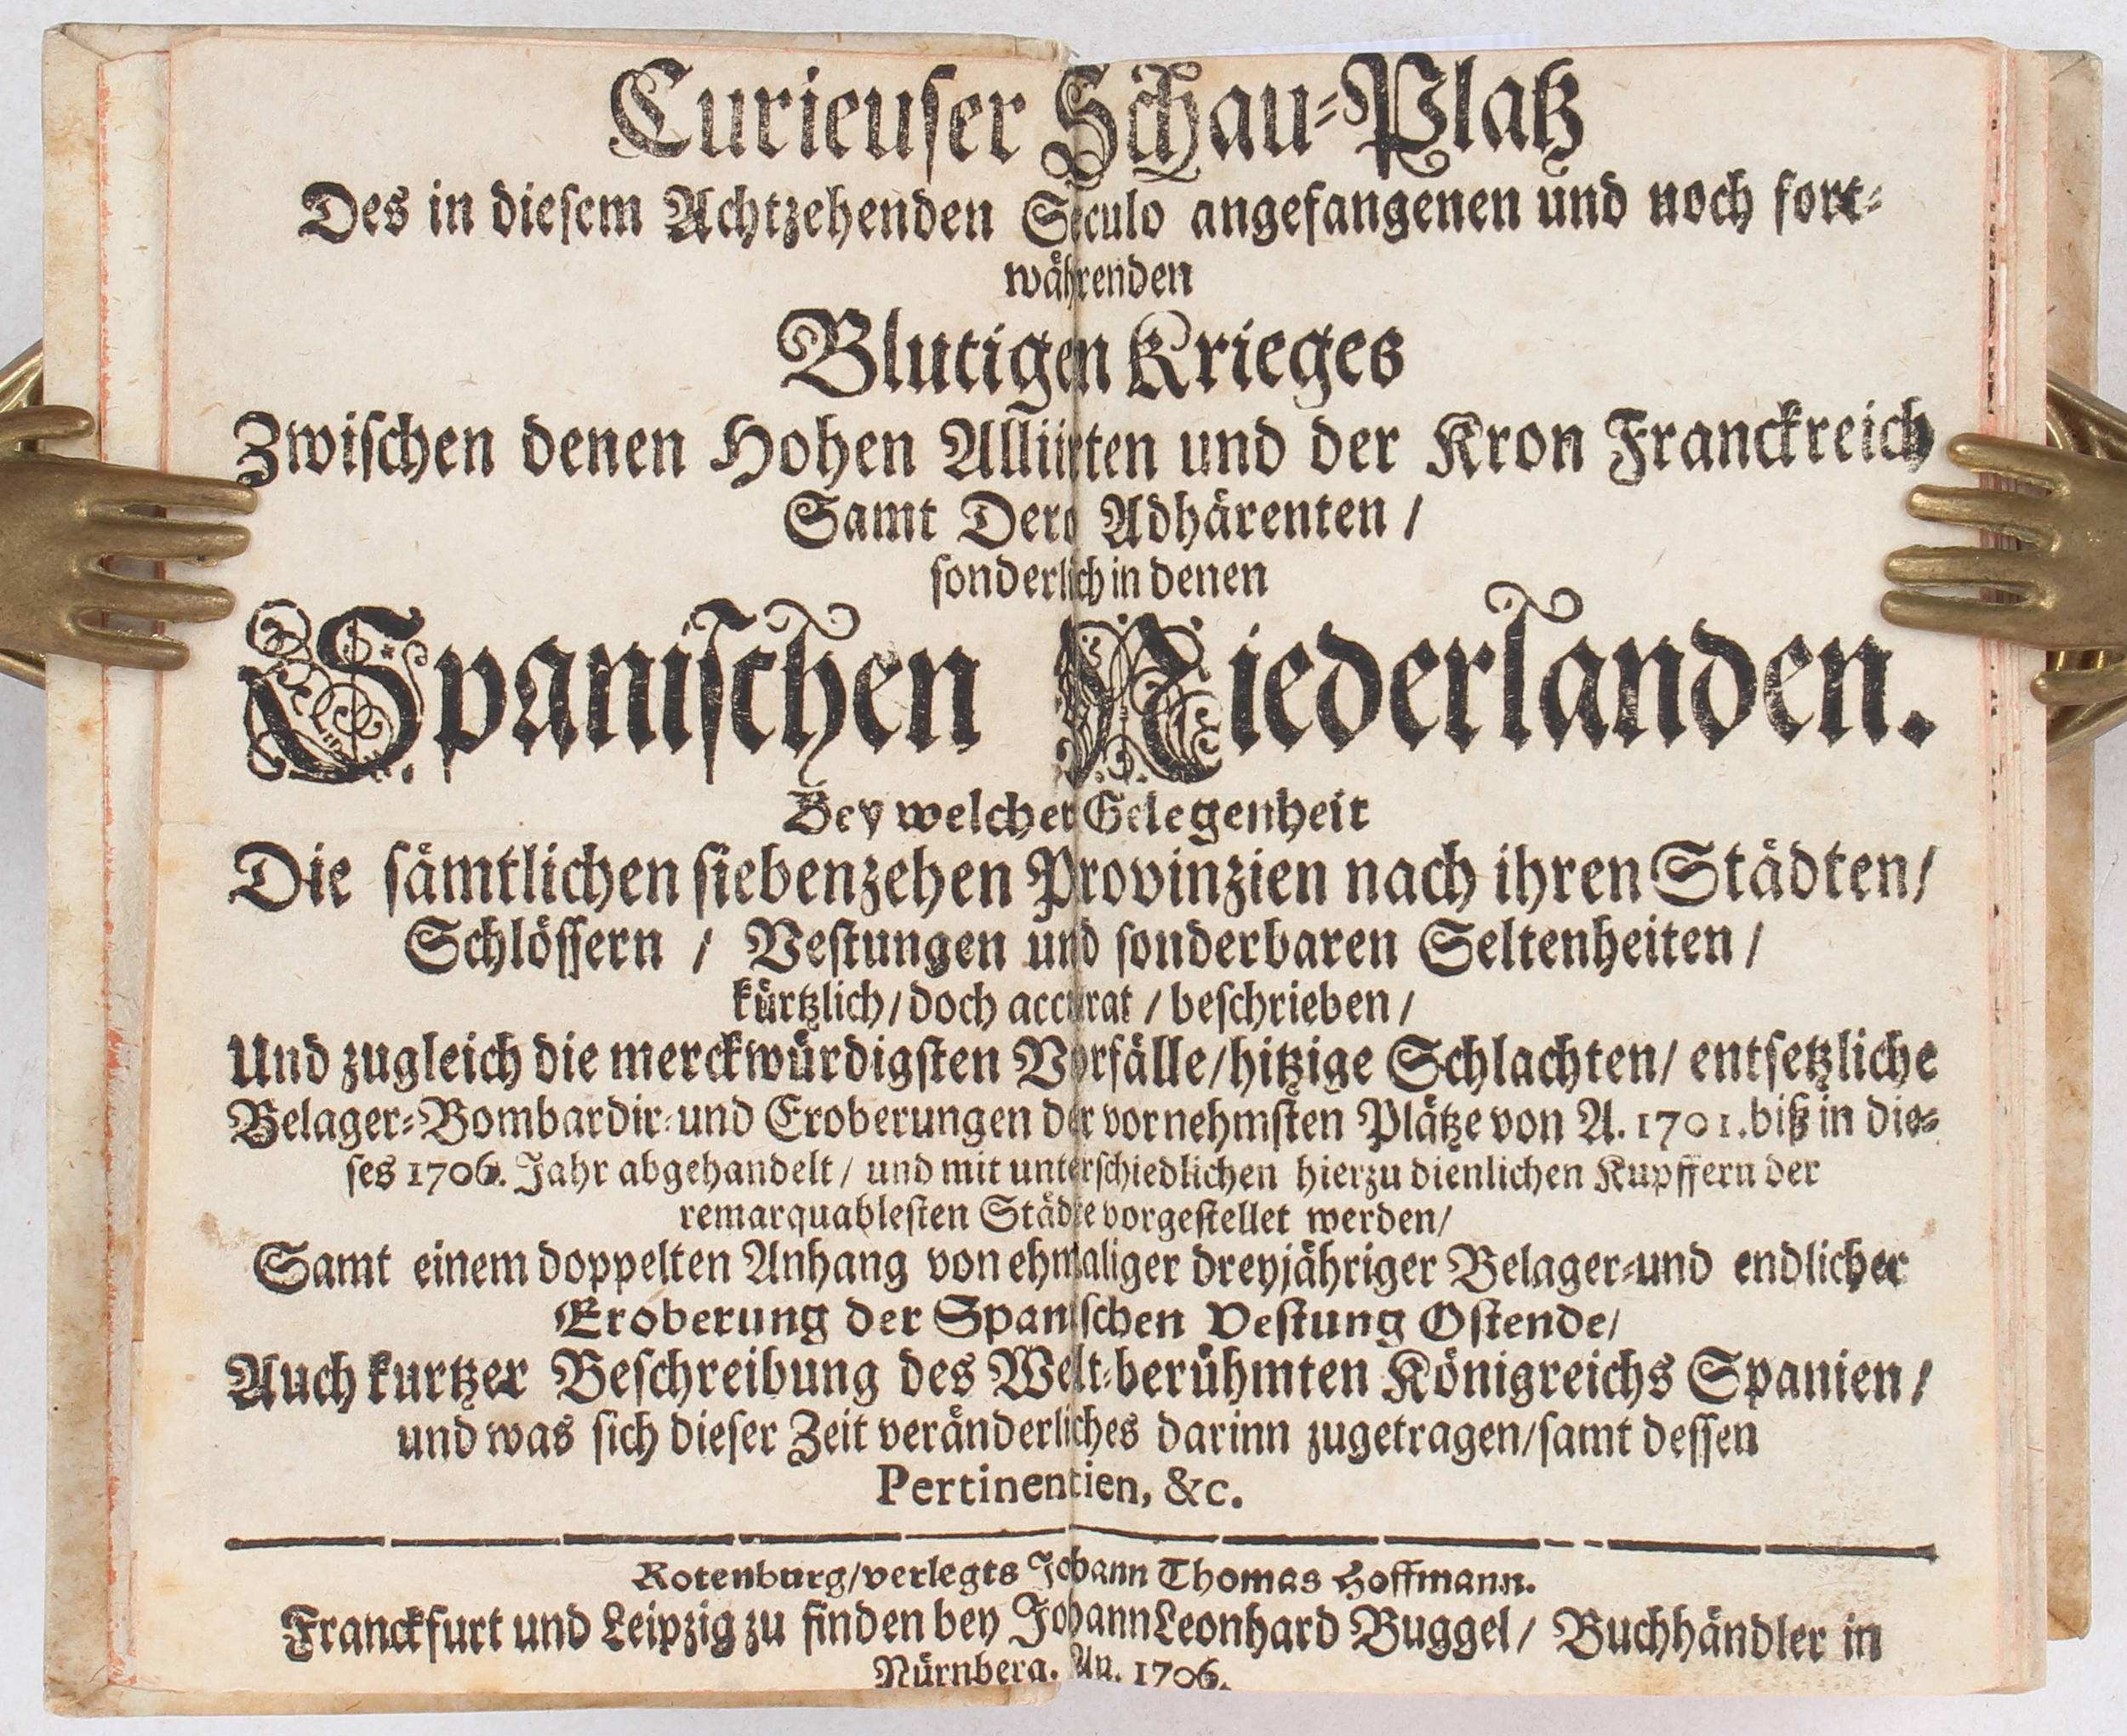 Curieuser Schau-Platz
Des in diesem Achtzehenden Seculo angefangenen und noch fort-
währenden
Blutigen Krieges
Zwischen denen Hohen Alliirten und der Kron Franckreich
Samt Dero Adhärenten /
sonderlich in denen
Spanischen Niederlanden.
Bey welcher Gelegenheit
Die sämtlichen siebenzehen Provinzien nach ihren Städten/
Schlössern / Vestungen und sonderbaren Seltenheiten /
kürtzlich / doch accurat / beschrieben /
Und zugleich die merckwürdigsten Vorfälle/hitzige Schlachten/ entsetzliche
Belager-Bombardir-und Eroberungen der vornehmsten Plätze von A. 1701. biß in die-
ses 1706. Jahr abgehandelt / und mit unterschiedlichen hierzu dienlichen Kupffern der
remarquablesten Städte vorgestellet werden/
Samt einem doppelten Anhang von ehmaliger dreyjähriger Belager-und endlicher
Eroberung der Spanischen Vestung Ostende/
Auch kurtzer Beschreibung des Welt-berühmten Königreichs Spanien /
und was sich dieser Zeit veränderliches darinn zugetragen/samt dessen
Pertinentien, &c.
Rotenburg/verlegts Johann Thomas Hoffmann.
Franckfurt und Leipzig zu finden bey Johann Leonhard Buggel/ Buchhändler in
Nürnberg. An. 1706.